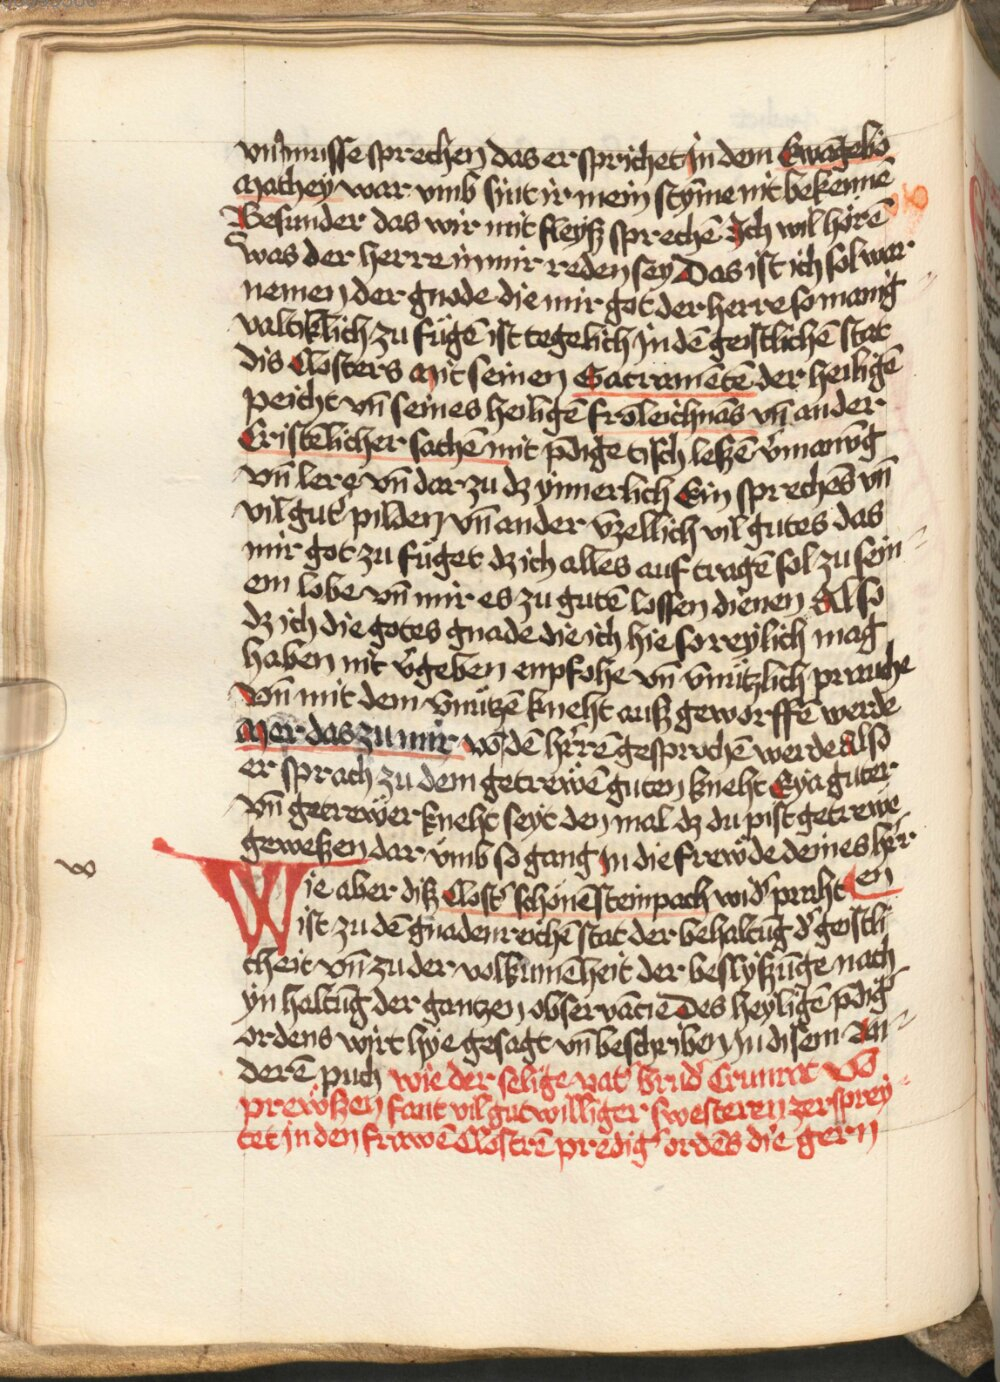 vn̄ musse sprechen das er sprichet jn dem Ewāgelio
Mathey war vmb sint ir mein stȳme nit bekennē
Besunder das wir mit fleyß sprechē Ich wil hörē
was der herre in mir reden sey Das ist ich sol war
nemen der gnode die mir got der herre so manig
valtiklich zu fügē ist tegelich jn dē geistlichē stat
dis Closters mit seinen Sacramētē der heiligē
peicht vn̄ seines heiligē froleichnās vn̄ ander
Cristēlicher sachē mit p̄dige tisch leßē v̄manūg
vn̄ lere vn̄ dar zu dz ynnerlich Ein sprechēs vn̄
vil gut' pilden vn̄ ander v̄zellich vil gutes das
mir got zu füget dz ich alles auf tragē sol zu sein
em lobe vn̄ mir es zu gutē lossen dienen Also
dz ich die gotes gnade die ich hie so reylich mag
haben nit v̄gebēn enpfohe vn̄ v̄nützlich prauche
Vn̄ mit dem v̄nützē kneht auß geworffē werde
Mer das zu mir vō dē hr̄rē gesprochē werde Also
er sprach zu dem getrewē guten kneht Eya guter
vn̄ getrewer kneht seyt den mal dz du pist getrewe
geweßen dar vmb so gang jn die frewde deines hr̄r
en
w
Wie aber diß Clost' schönēsteinpach wid' praht
ist zu dē gnadenreichē stat der behaltūg d' geistli
cheit vn̄ zu der volkumēheit der beslyßūge nach
yn haltūg der gantzen obseruācie Des heyligē p̄dig'
ordens wirt hye gesagt vn̄ beschriben jn disem an
derē puch wie der selige vat' Brud' Cunrat vō
prewßen sant vil gutwilliger swesteren zersprey
tet jn den frawē Clöstrē predig' ordēs die gern